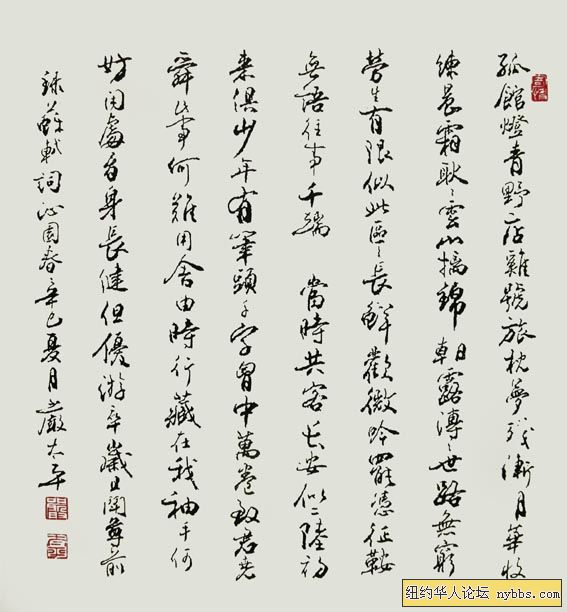 孤館燈青野店雞號旅枕夢殘漸月華收
練晨霜耿々雲山摛錦朝露漙々世路無窮
勞生有限似此區々長鮮歡微吟罷憑征鞍
無語往事千端 當時共客長安似二陸初
來俱少年有筆頭千字胸中萬卷致君堯
舜此事何難用舍由時行藏在我袖手何
妨閑處看身長健但優游卒歲且鬥尊前
錄蘇軾詞沁園春辛巳夏月嚴太平
纽约华人论坛 nybbs.com